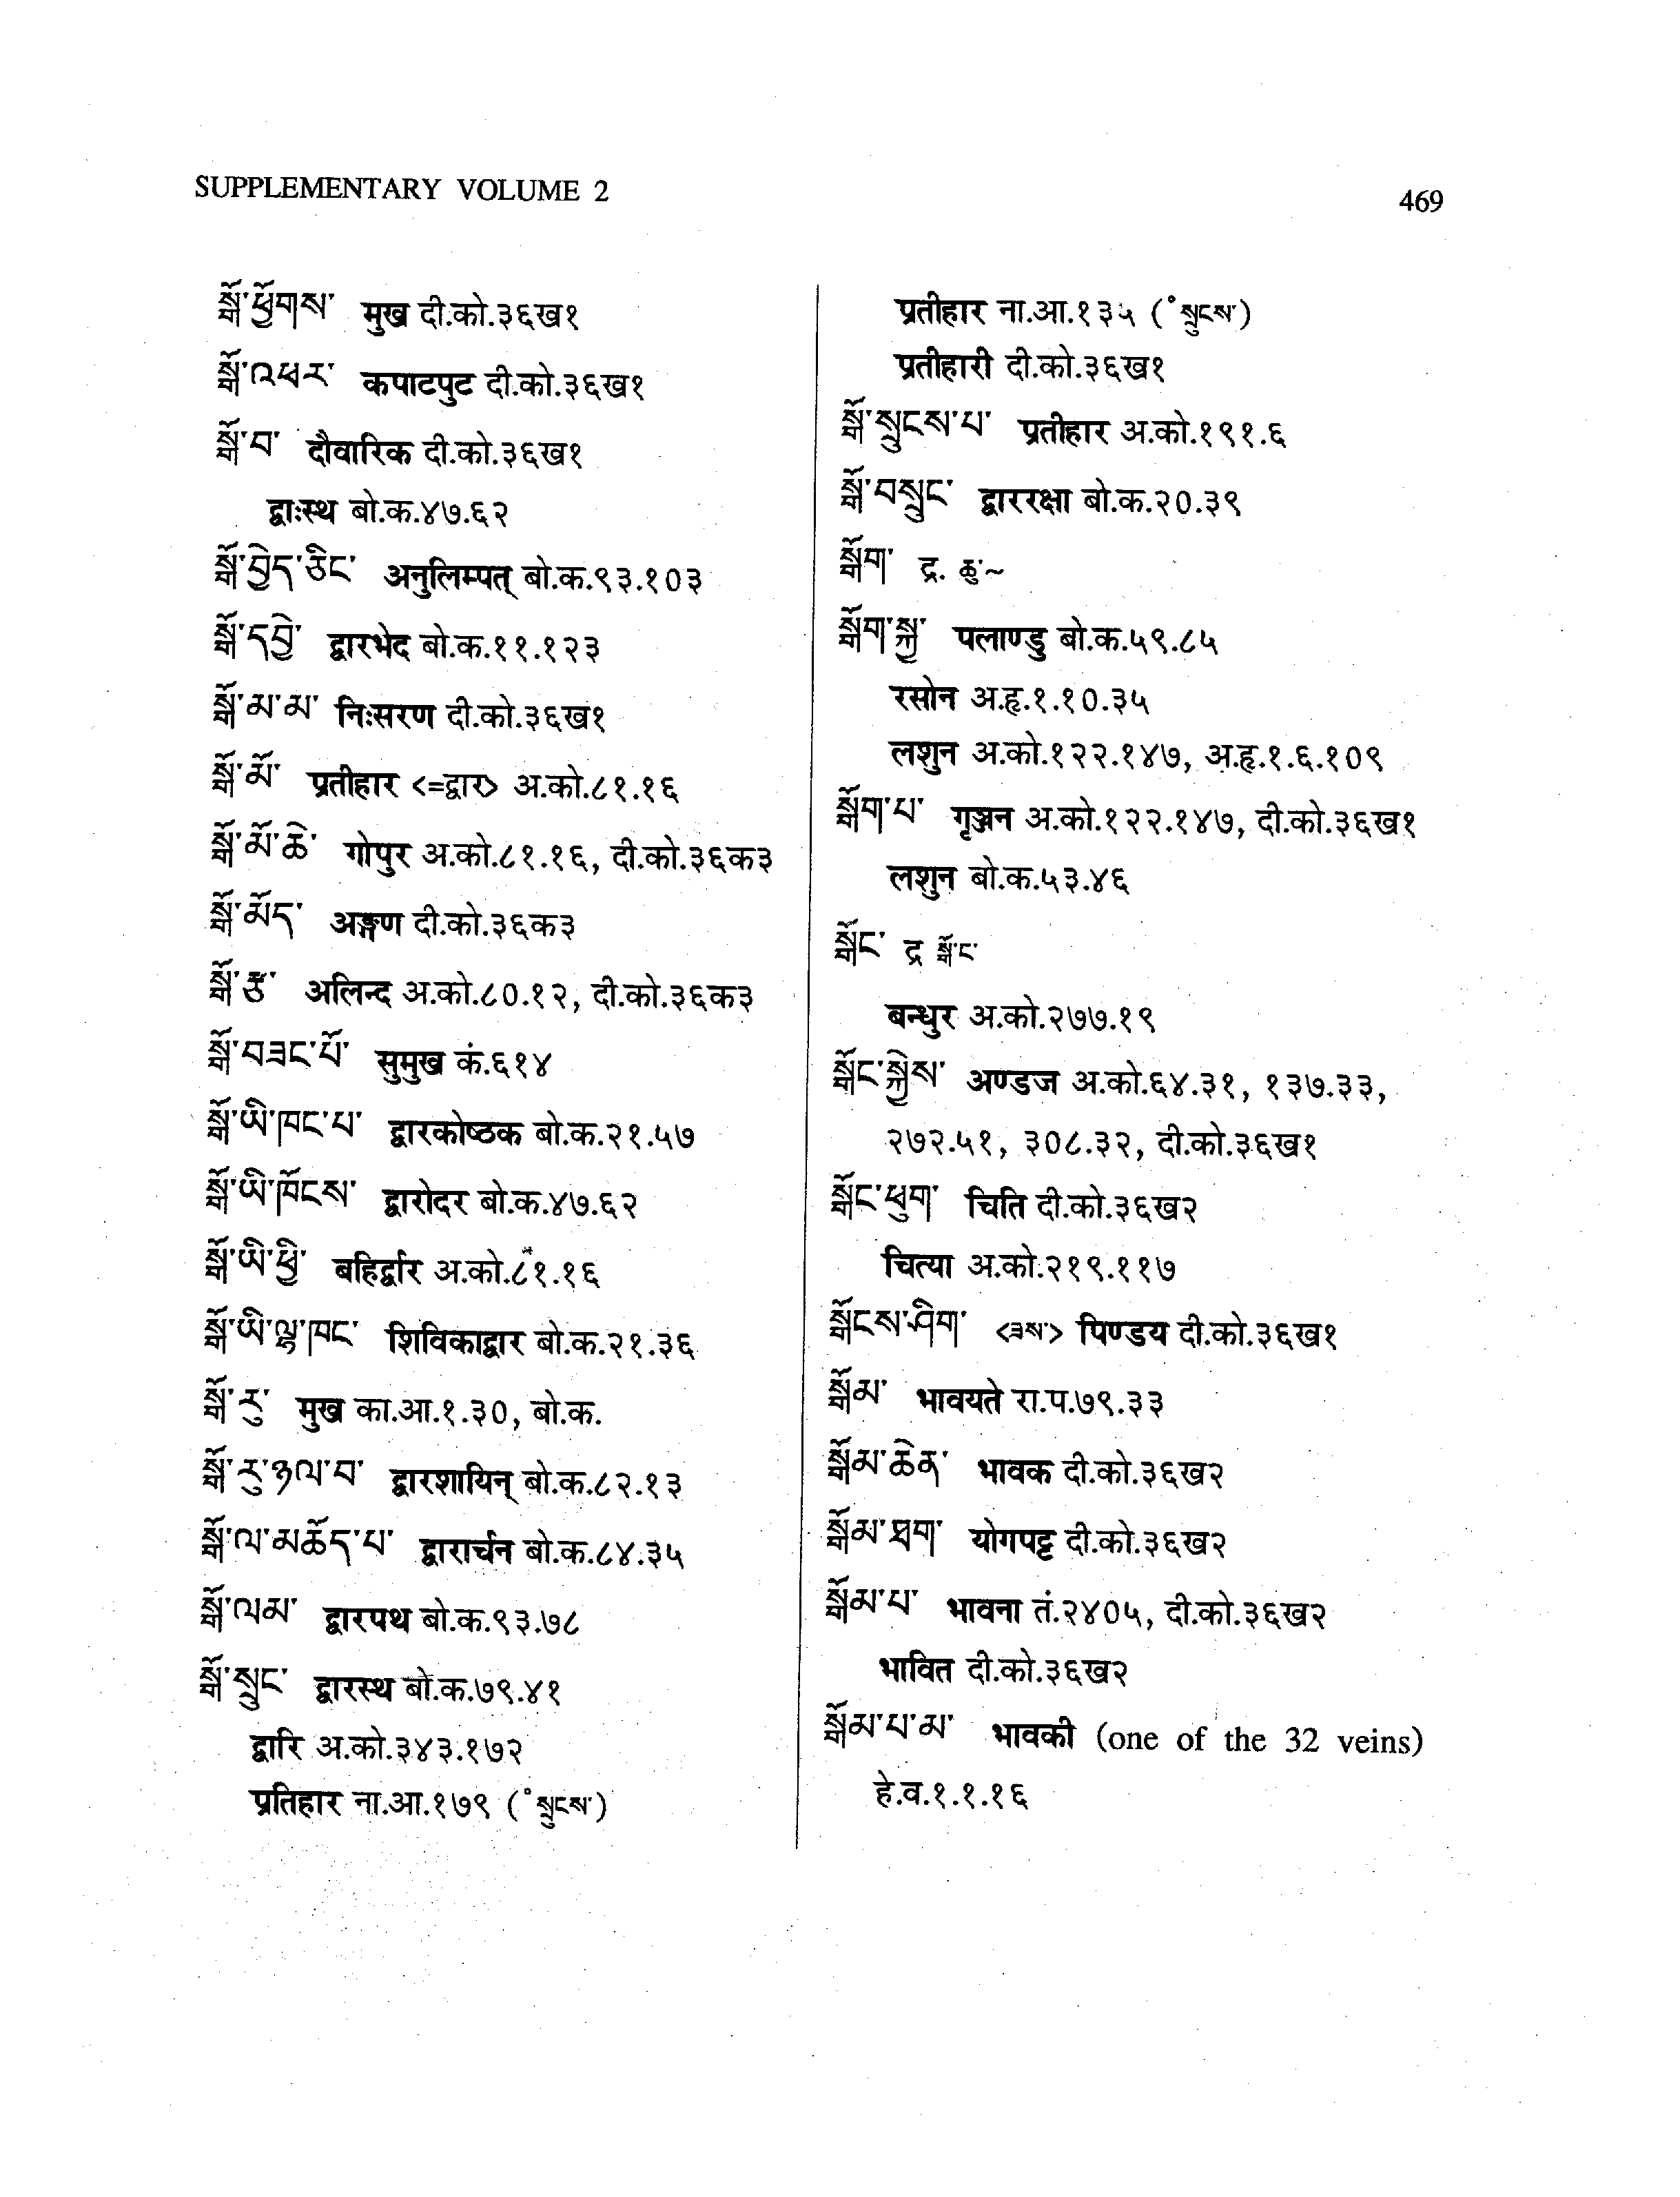 SUPPLEMENTARY VOLUME 2
469
སྒོ་ཕྱོགས་ मुख दी.को.३६ख१
སྒོ་འཕར་ कपाटपुट दी.को.३६ख१
སྒོ་བ་ दौवारिक दी.को.३६ख१
द्वाःस्थ बो.क.४७.६२
སྒོ་བྱེད་ཅིང་ अनुलिम्पत् बो.क.९३.१०३
སྒོ་དབྱེ་ द्वारभेद बो.क.११.१२३
སྒོ་མ་མ་ निःसरण दी.को.३६ख१
སྒོ་མོ་ प्रतीहार <=द्वार> अ.को.८१.१६
སྒོ་མོ་ཆེ་ गोपुर अ.को.८१.१६, दी.को.३६क३
སྒོ་མོད་ अङ्गण दी.को.३६क३
སྒོ་རྩ་ अलिन्द अ.को.८०.१२, दी.को.३६क३
སྒོ་བཟང་པོ་ सुमुख कं.६१४
སྒོ་ཡི་ཁང་པ་ द्वारकोष्ठक बो.क.२१.५७
སྒོ་ཡི་ཁོངས་ द्वारोदर बो.क.४७.६२
སྒོ་ཡི་ཕྱི་ बहिर्द्वार अ.को.८१.१६
སྒོ་ཡི་ལྷ་ཁང་ शिविकाद्वार बो.क.२१.३६
སྒོ་རུ་ मुख का.आ.१.३०, बो.क.
སྒོ་རུ་ཉལ་བ་ द्वारशायिन् बो.क.८२.१३
སྒོ་ལ་མཆོད་པ་ द्वारार्चन बो.क.८४.३५
སྒོ་ལམ་ द्वारपथ बो.क.९३.७८
སྒོ་སྲུང་ द्वारस्थ बो.क.७९.४१
द्वारि अ.को.३४३.१७२
प्रतिहार ना.आ.१७९ (°སྲུངས་)
प्रतीहार ना.आ.१३५ (°སྲུངས་)
प्रतीहारी दी.को.३६ख१
སྒོ་སྲུངས་པ་ प्रतीहार अ.को.१९१.६
སྒོ་བསྲུང་ द्वाररक्षा बो.क.२०.३९
སྒོག་ द्र. ཆུ་~
སྒོག་སྐྱ་ पलाण्डु बो.क.५९.८५
रसोन अ.हृ.१.१०.३५
लशुन अ.को.१२२.१४७, अ.हृ.१.६.१०९
སྒོག་པ་ गृञ्जन अ.को.१२२.१४७, दी.को.३६ख१
लशुन बो.क.५३.४६
སྒོང་ द्र སྒོ་ང་
बन्धुर अ.को.२७७.१९
སྒོང་སྐྱེས་ अण्डज अ.को.६४.३१, १३७.३३,
२७२.५१, ३०८.३२, दी.को.३६ख१
སྒོང་ཕུག་ चिति दी.को.३६ख२
चित्या अ.को.२१९.११७
སྒོངས་ཤིག་ <ཟས་> पिण्डय दी.को.३६ख१
སྒོམ་ भावयते रा.प.७९.३३
སྒོམ་ཆེན་ भावक दी.को.३६ख२
སྒོམ་ཐག་ योगपट्ट दी.को.३६ख२
སྒོམ་པ་ भावना तं.२४०५, दी.को.३६ख२
भावित दी.को.३६ख२
སྒོམ་པ་མ་ भावकी (one of the 32 veins)
हे.व.१.१.१६